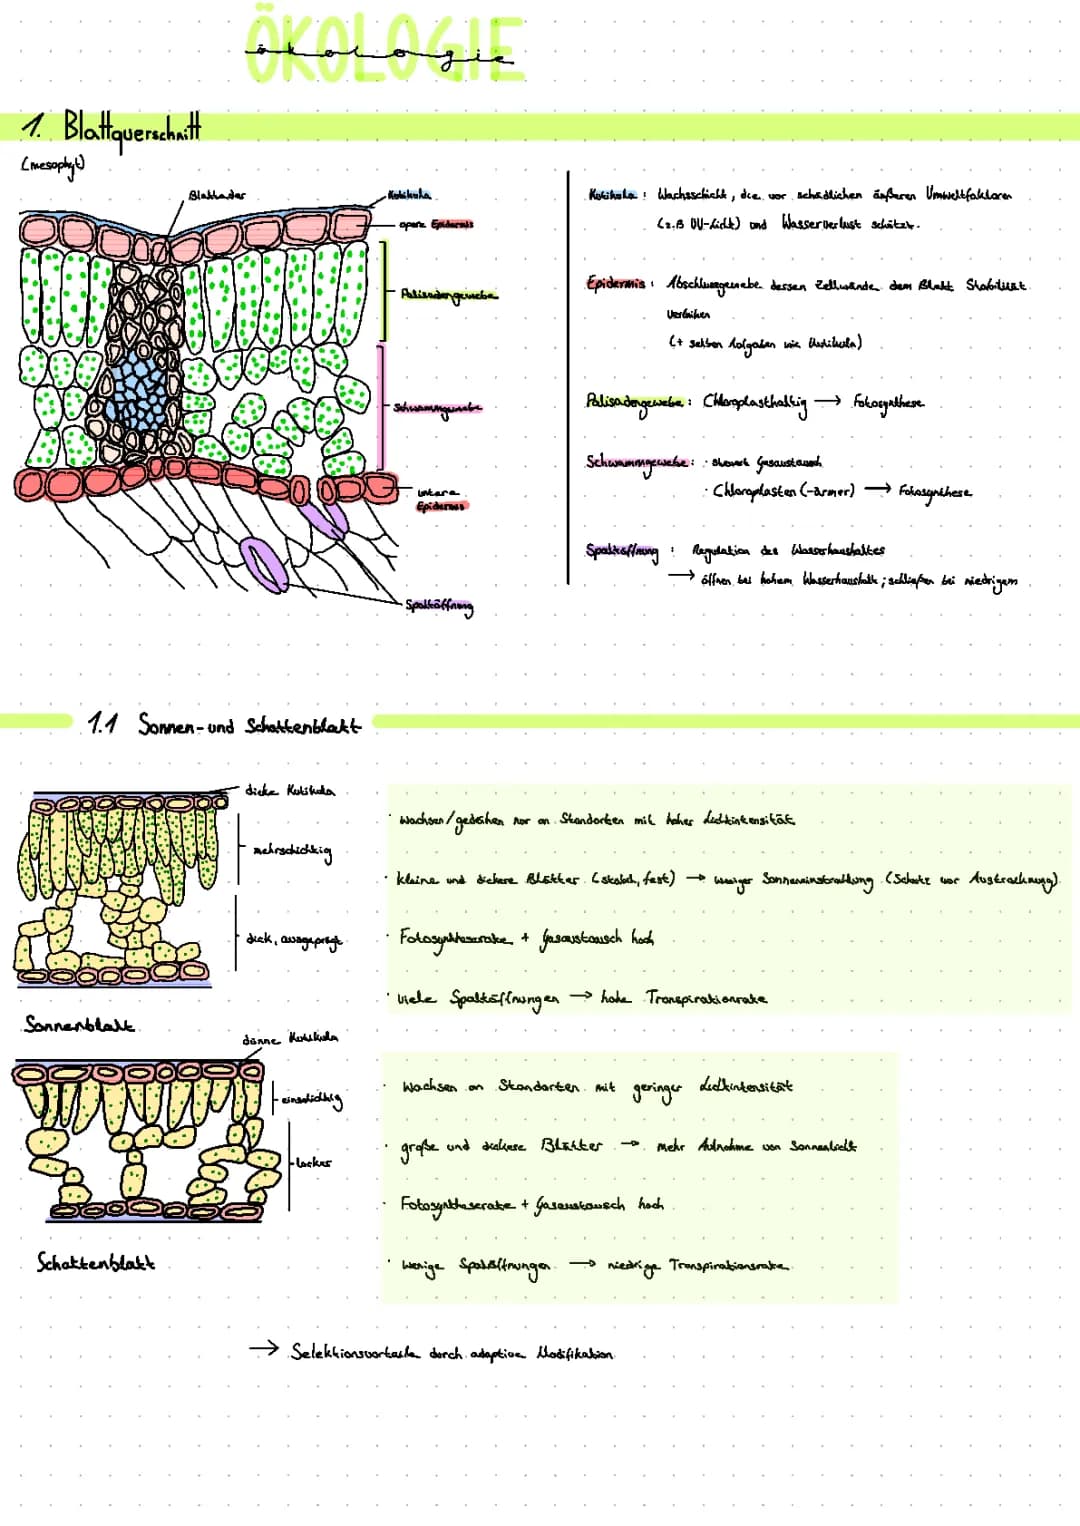 ÖKOLOGIE
ökologie
1. Blattquerschnitt
(mesophyt)
Blattader
Kutikula
obere Epidermis
Palisadengewebe
Schwammgewebe
untere
Epidermis
Spaltöffnung
Kutikula : Wachsschicht, die vor schädlichen äußeren Umweltfaktoren
(z.B UV-Licht) und Wasserverlust schützt.
Epidermis : Abschlussgewebe dessen Zellwände dem Blatt Stabilität
verleihen
(+ selben Aufgaben wie Kutikula)
Palisadengewebe : Chloroplasthaltig → Fotosynthese
Schwammgewebe : · steuert Gasaustausch
· Chloroplasten (-ärmer) → Fotosynthese
Spaltöffnung : Regulation des Wasserhaushaltes
→ öffnen bei hohem Wasserhaushalt ; schließen bei niedrigem
1.1 Sonnen- und Schattenblatt
dicke Kutikula
mehrschichtig
dick, ausgeprägt
Sonnenblatt
· wachsen/gedeihen nur an Standorten mit hoher Lichtintensität
· kleine und dickere Blätter (stabil, fest) → weniger Sonneneinstrahlung (Schutz vor Austrocknung)
· Fotosyntheserate + Gasaustausch hoch
· viele Spaltöffnungen → hohe Transpirationrate
dünne Kutikula
einschichtig
locker
Schattenblatt
· Wachsen an Standorten mit geringer Lichtintensität
· große und dickere Blätter → mehr Aufnahme von Sonnenlicht
· Fotosyntheserate + Gasaustausch hoch
· wenige Spaltöffnungen → niedrige Transpirationsrate
→ Selektionsvorteile durch adaptive Modifikation